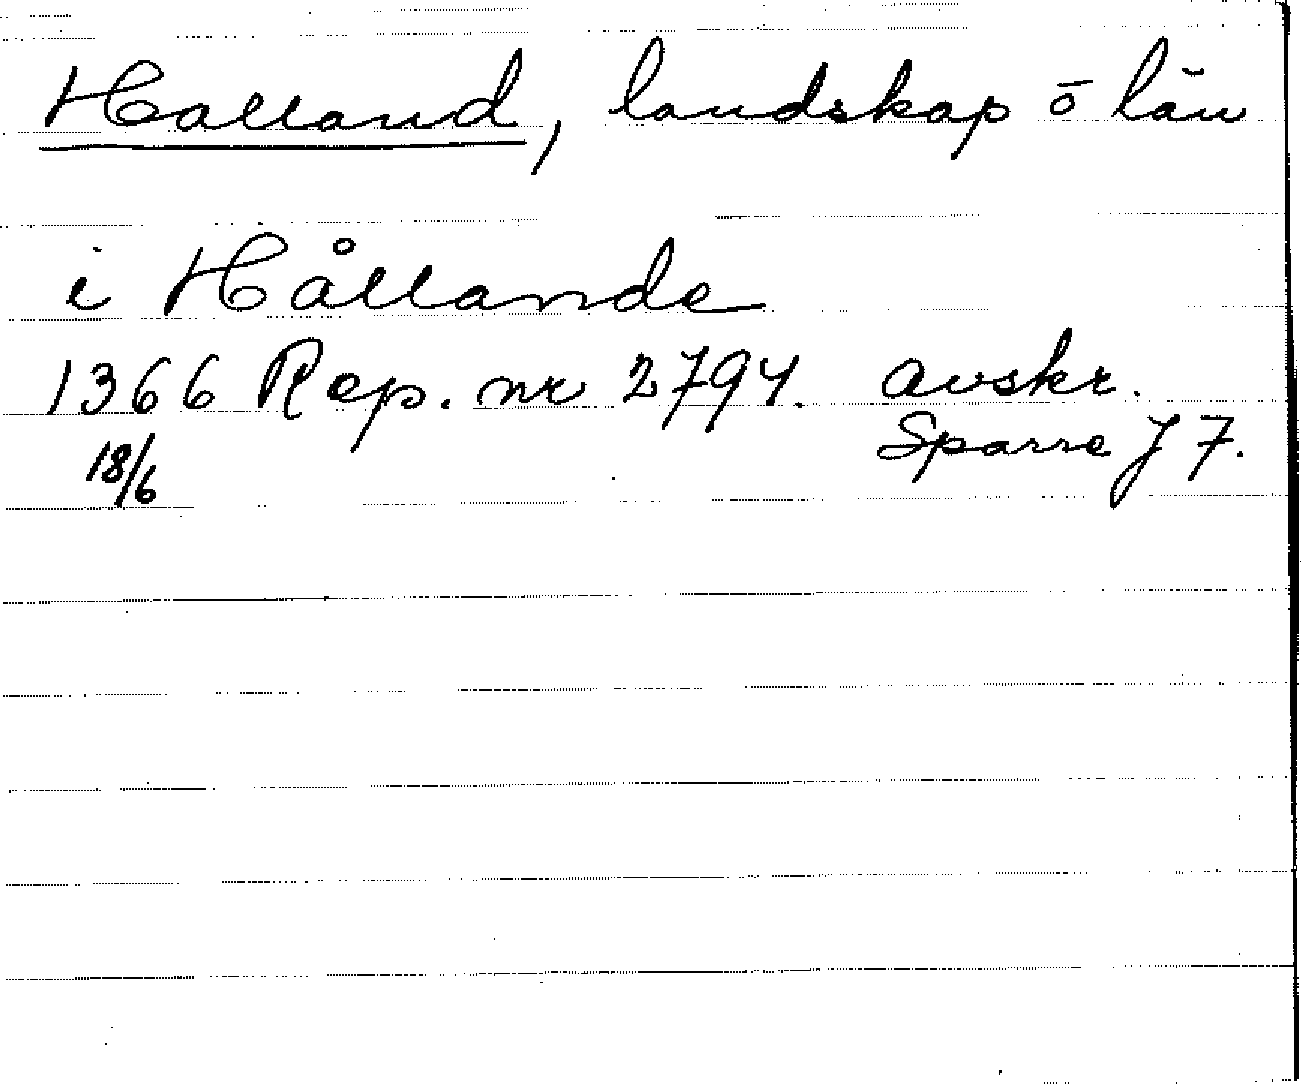 Halland, landskap ō län
i Hållande
1366 Rep. nr 2794. avskr.
18/6 Sparre J 7.